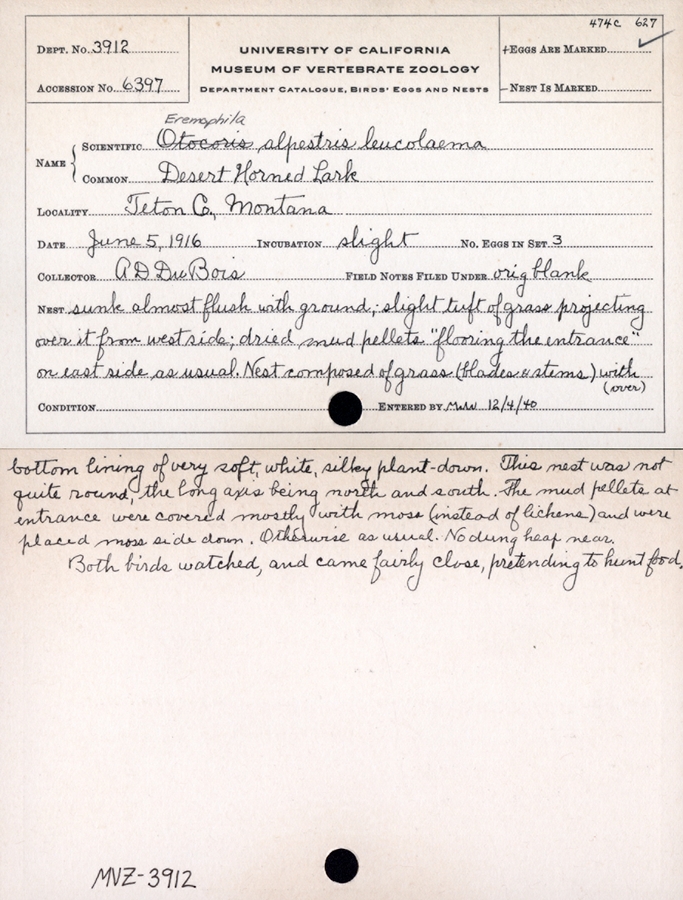 474c 627
DEPT. No. 3912
UNIVERSITY OF CALIFORNIA
+EGGS ARE MARKED ✓
MUSEUM OF VERTEBRATE ZOOLOGY
ACCESSION No. 6397
DEPARTMENT CATALOGUE, BIRDS' EGGS AND NESTS
-NEST IS MARKED
Eremophila
NAME { SCIENTIFIC Otocoris alpestris leucolaema
COMMON Desert Horned Lark
LOCALITY Teton Co., Montana
DATE June 5, 1916 INCUBATION slight No. EGGS IN SET 3
COLLECTOR A D Du Bois FIELD NOTES FILED UNDER orig blank
NEST sunk almost flush with ground; slight tuft of grass projecting
over it from west side; dried mud pellets "flooring the entrance"
on east side as usual. Nest composed of grass (blades & stems) with
(over)
CONDITION ENTERED BY MWW 12/4/40
bottom lining of very soft, white, silky plant-down. This nest was not
quite round, the long axis being north and south. The mud pellets at
entrance were covered mostly with moss (instead of lichens) and were
placed moss side down. Otherwise as usual. No dung heap near.
Both birds watched, and came fairly close, pretending to hunt food.
MVZ-3912